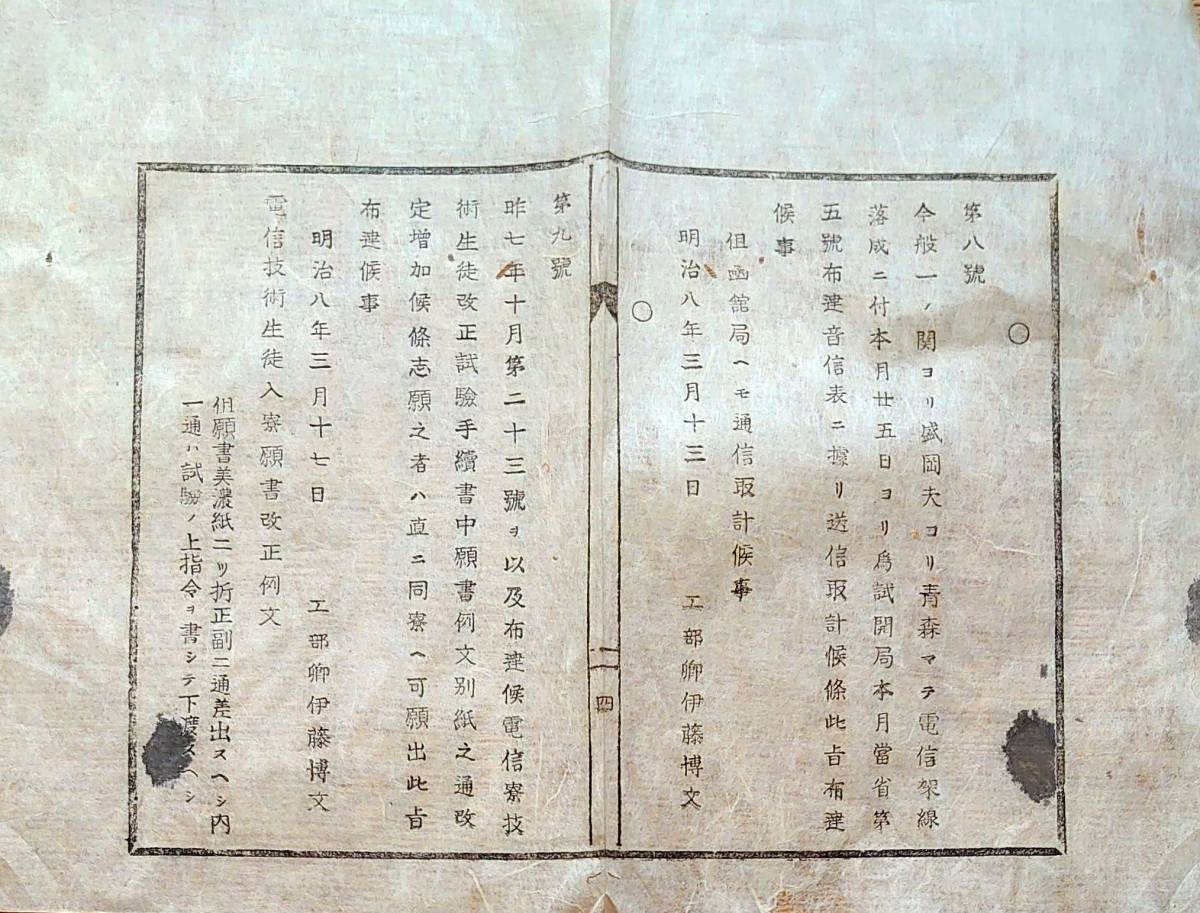 ○
第八號
今般一ノ関ヨリ盛岡夫ヨリ青森マテ電信架線
落成ニ付本月廿五日ヨリ爲試開局本月當省第
五號布達音信表ニ據リ送信取計候條此旨布達
候事
但函舘局ヘモ通信取計候事
明治八年三月十三日 工部卿伊藤博文
○
第九號
昨七年十月第二十三號ヲ以及布達候電信寮技
術生徒改正試驗手續書中願書例文別紙之通改
定增加候條志願之者ハ直ニ同寮ヘ可願出此旨
布達候事
明治八年三月十七日 工部卿伊藤博文
電信技術生徒入寮願書改正例文
但願書美濃紙二ツ折正副二通差出スヘシ内
一通ハ試驗ノ上指令ヲ書シテ下渡スヘシ
四